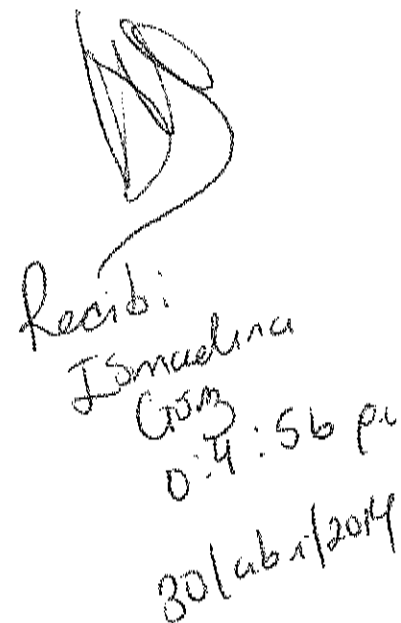 Recibi:
Ismaelina
04:56 p.
30/abri/2014